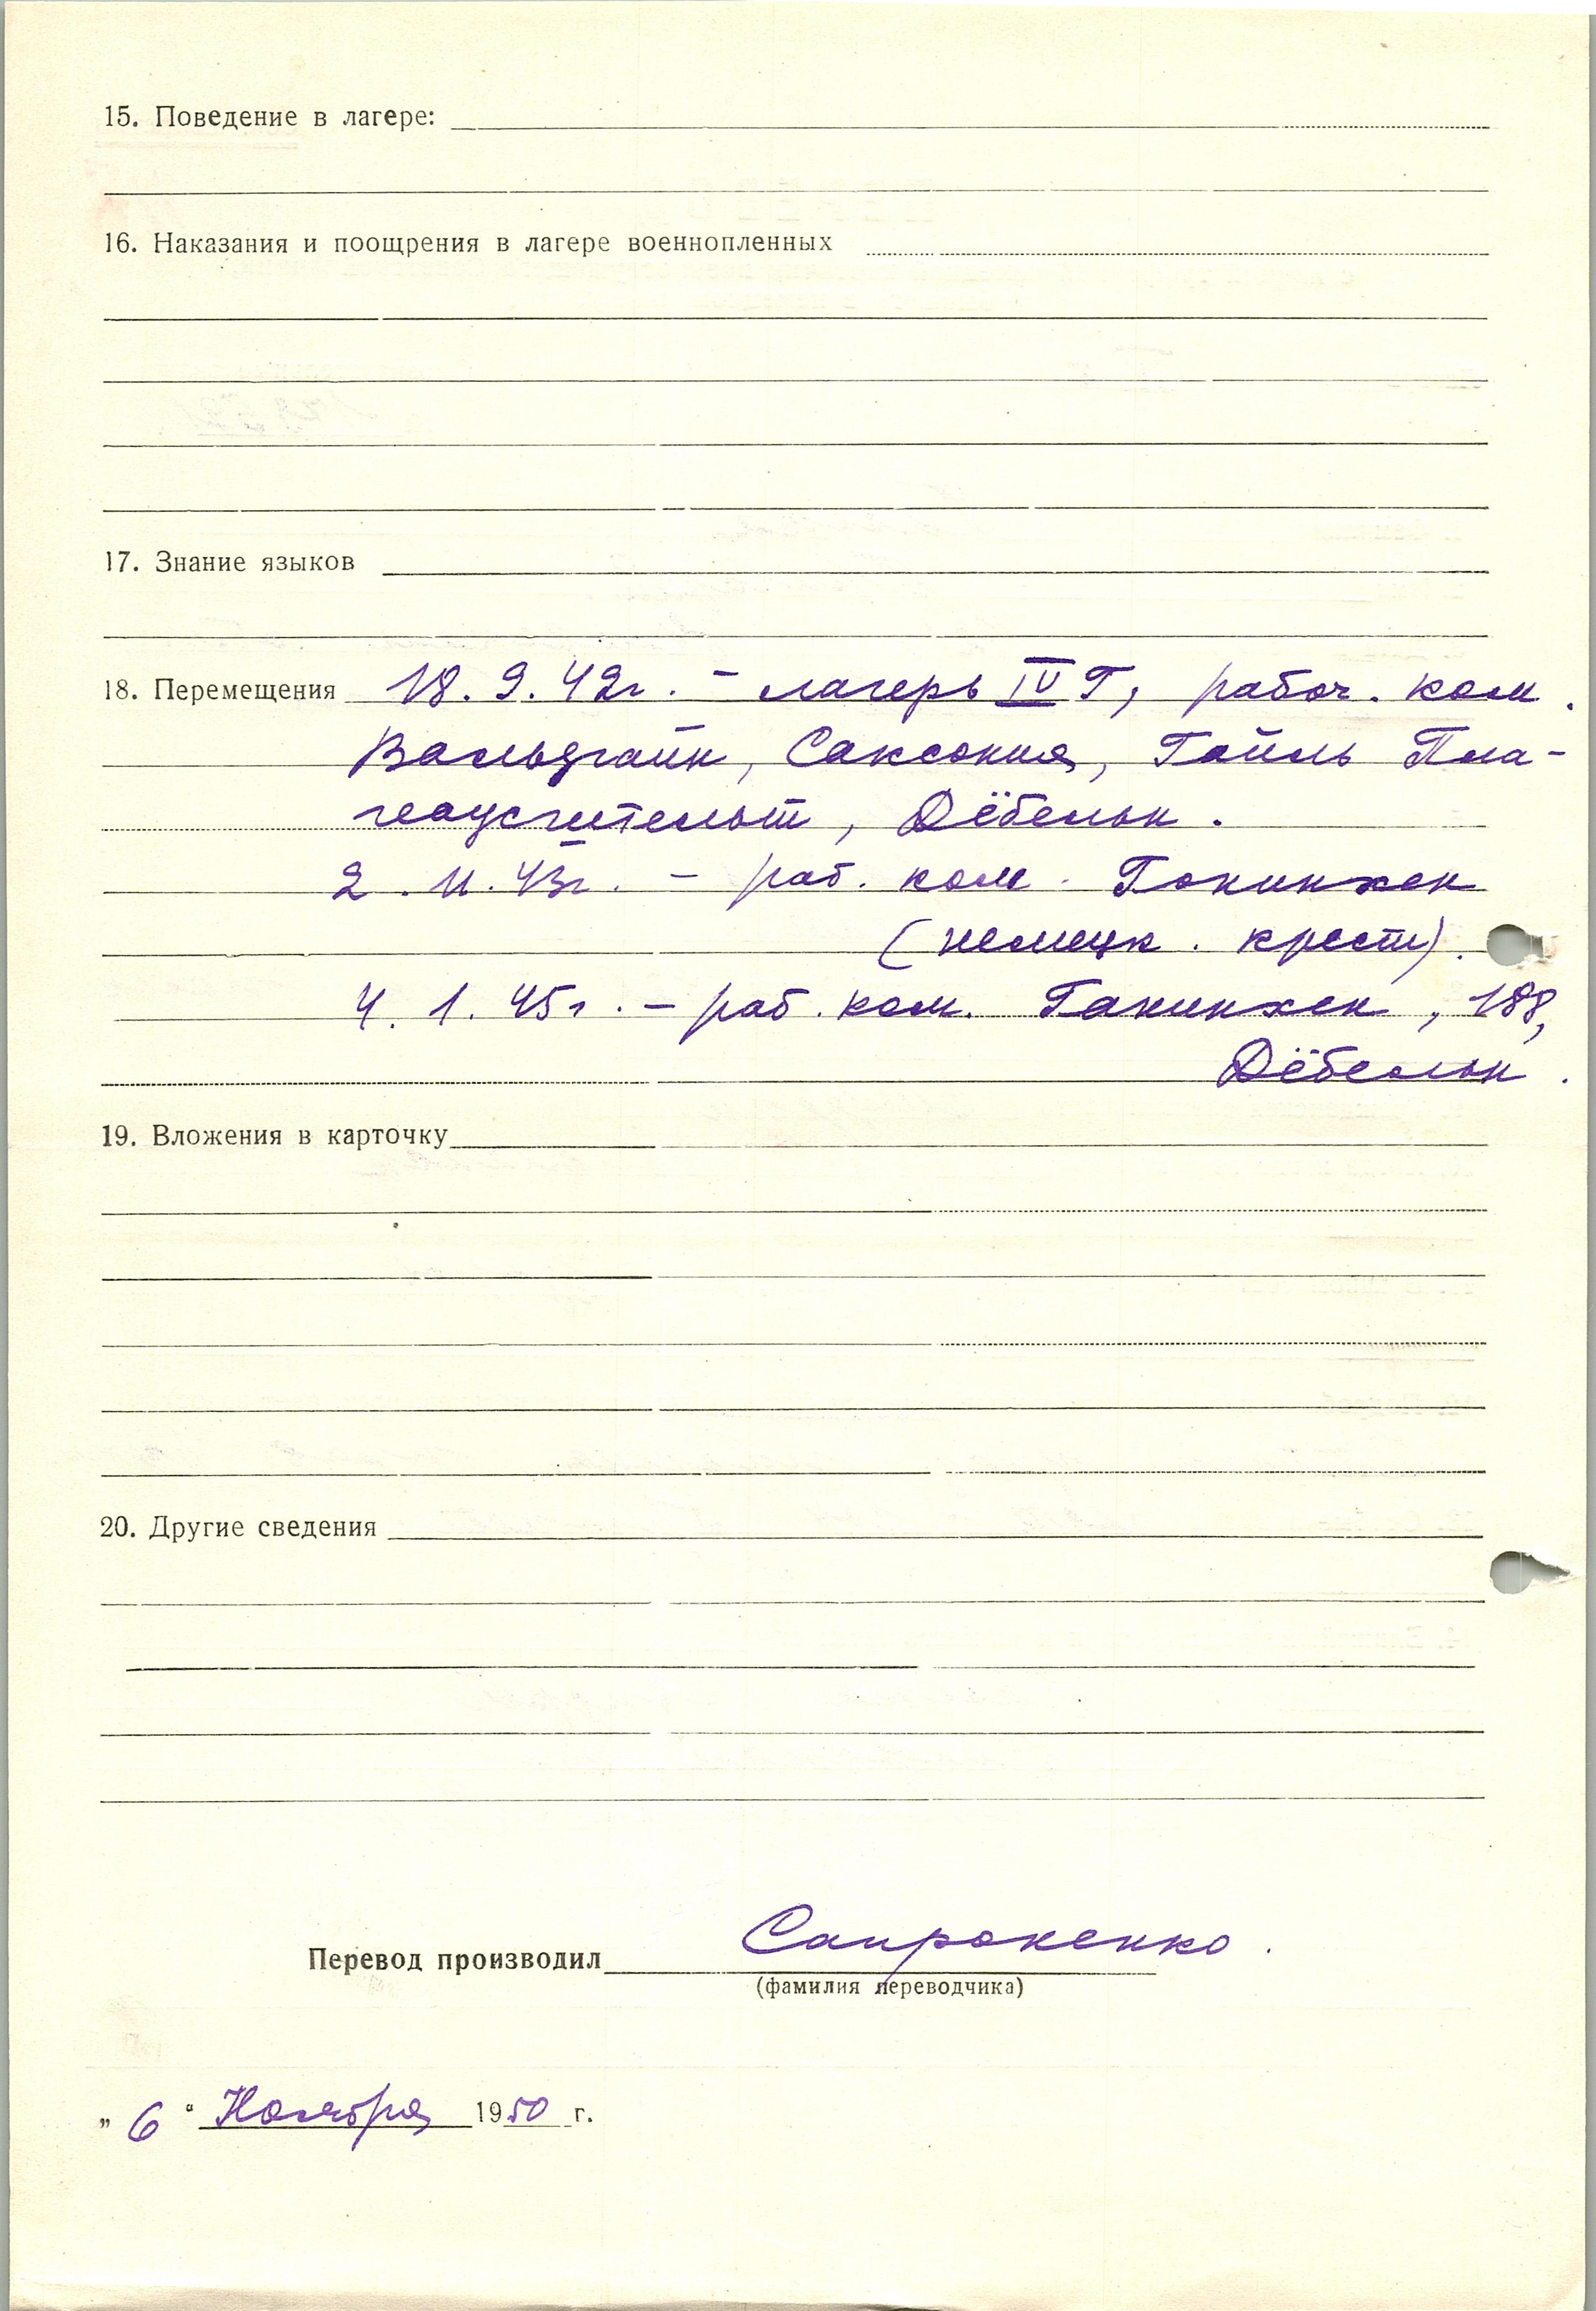 15. Поведение в лагере:
16. Наказания и поощрения в лагере военнопленных
17. Знание языков
18. Перемещения 18. 9. 42г. – лагерь IV Г, рабоч. ком.
Вальдгайн, Саксония, Гайль Пла-
2. 11. 43г. – раб. ком. Гокинхен
(немецк. крест).
4. 1. 45г. – раб. ком. Гакинхен, 188,
Дёбельн.
19. Вложения в карточку
20. Другие сведения
Перевод производил Сапрокенко.
(фамилия переводчика)
„ 6 “ Ноября 1950 г.